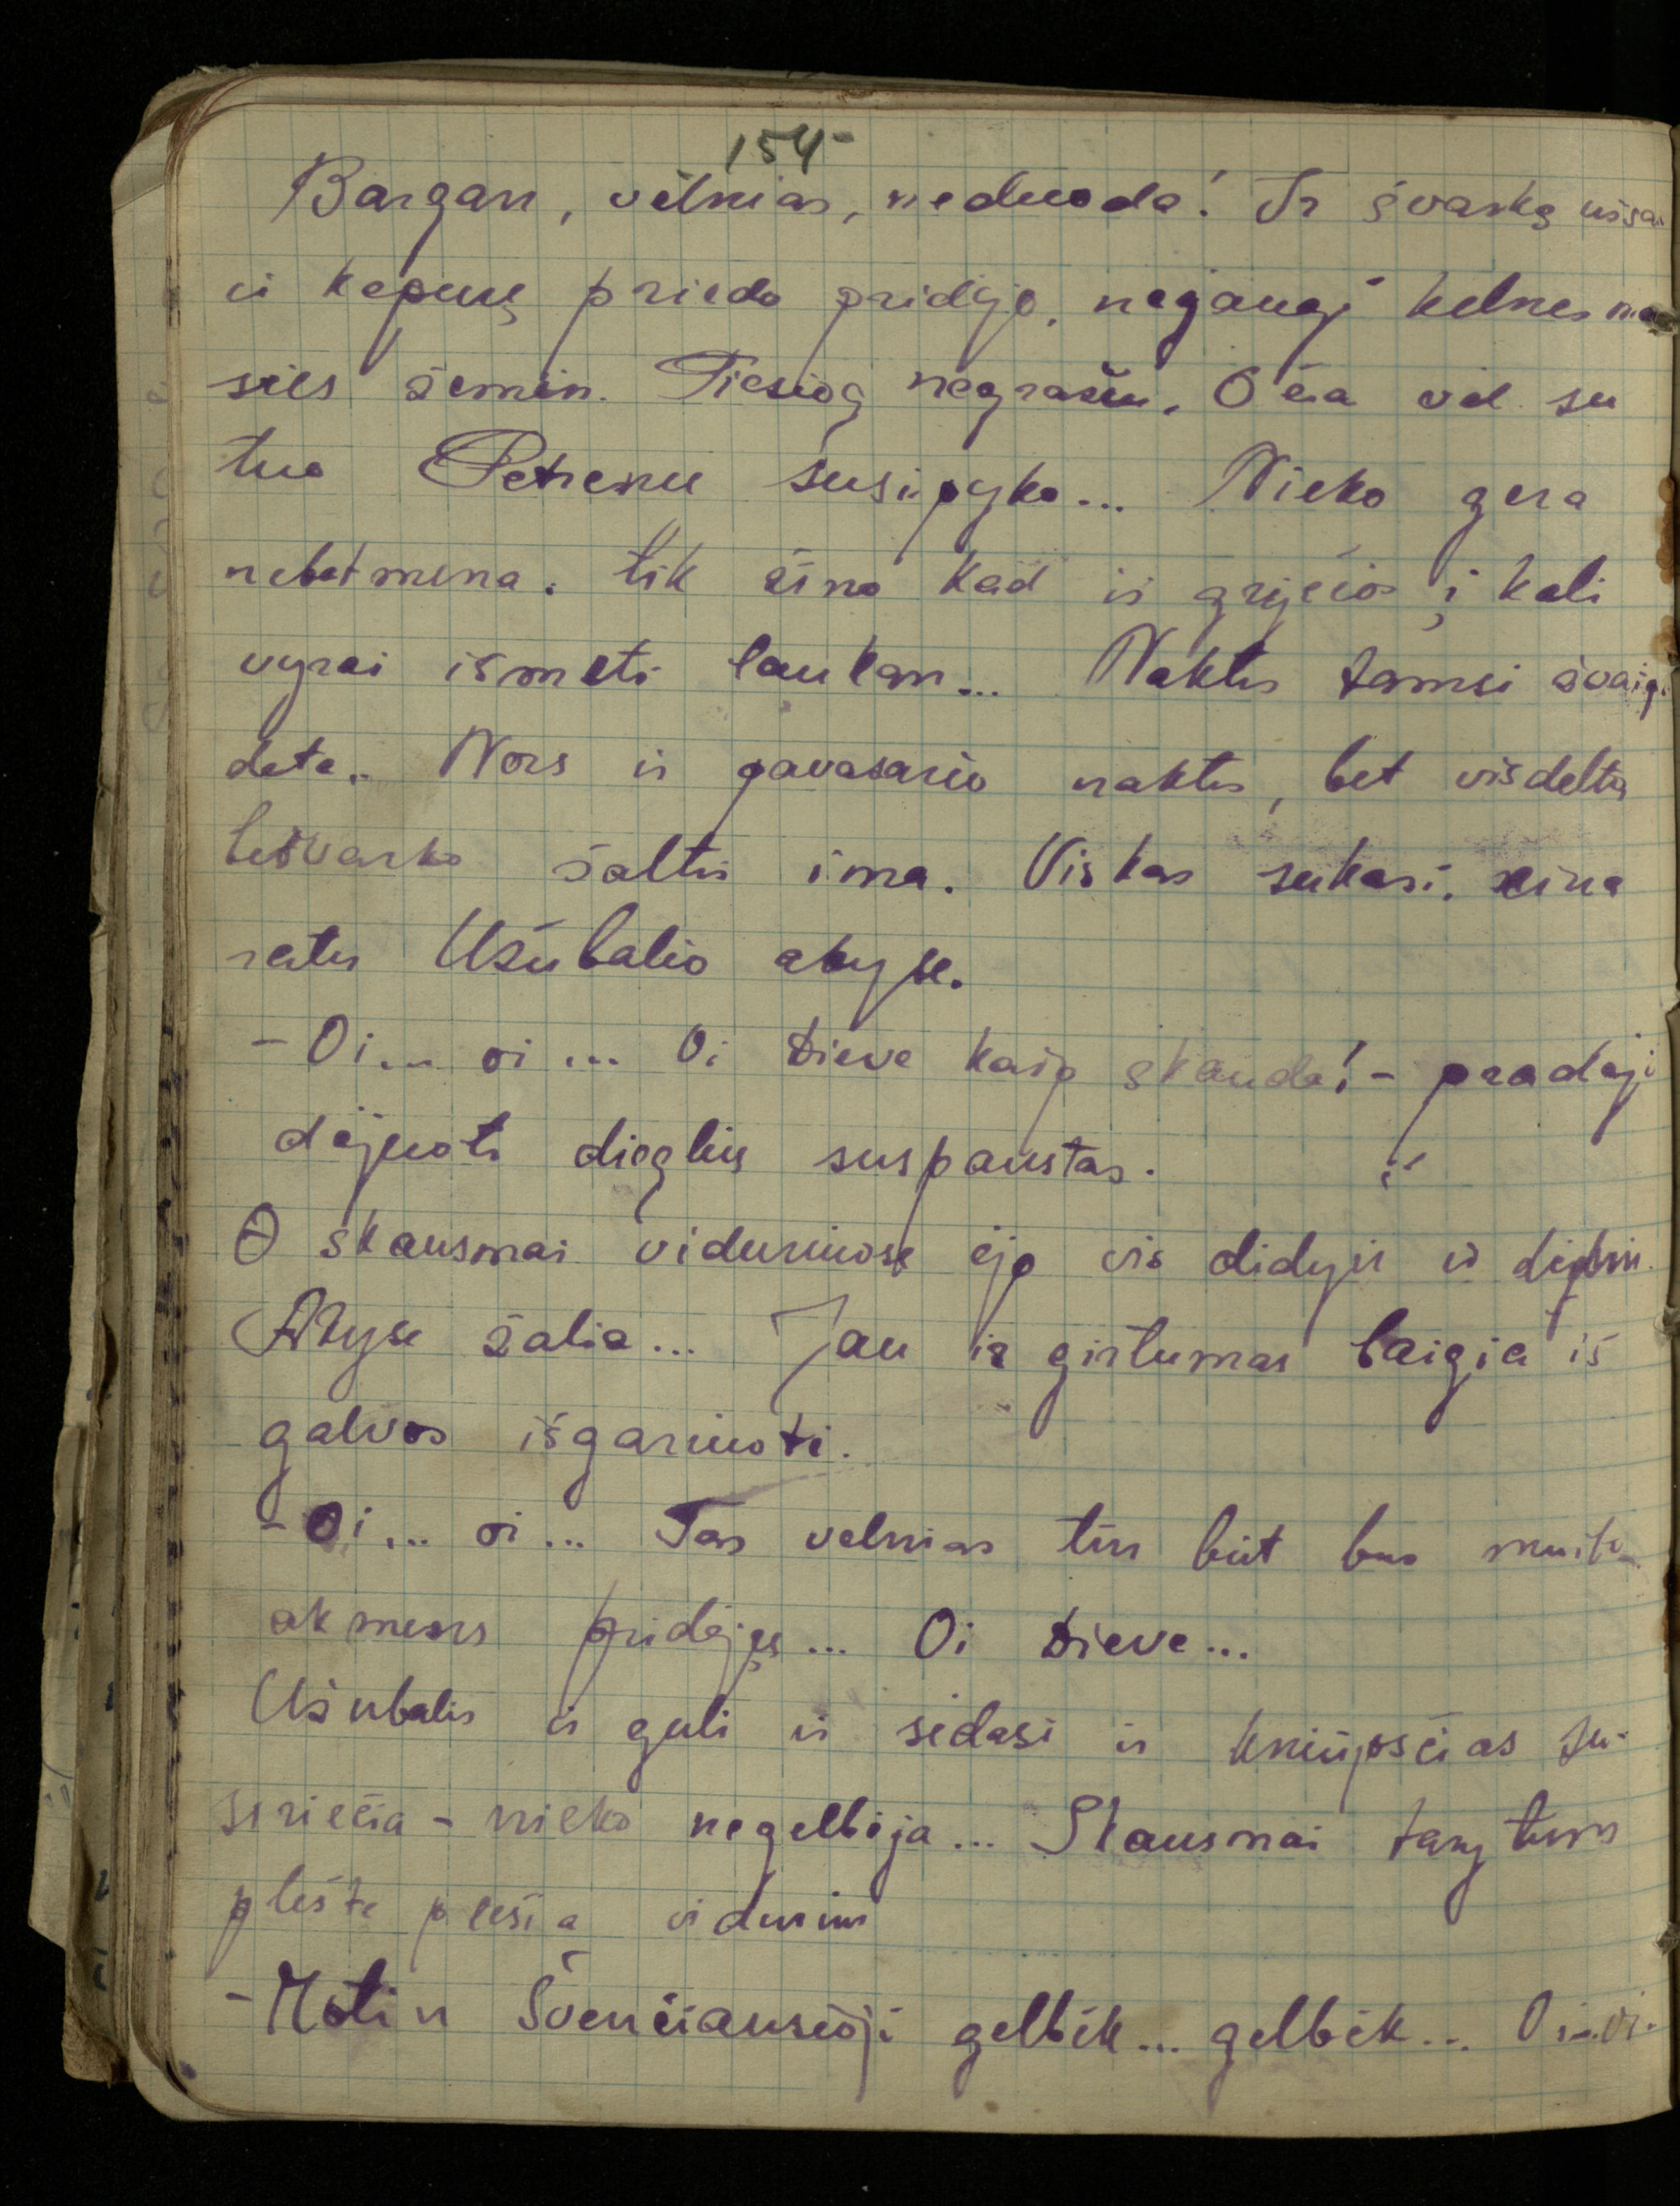 154
Bargan, velnias, neduoda! Ir švarką
ir kepurę priedo pridėjo, negangi kelnes
sies žemin. Tiesiog negražu. O čia vėl su
tuo Petrenu susipyko... Nieko gera
nebatmena. tik žino kad ir gryčios į keli
vyrai išmeti laukan... Naktis tamsi žvaigž
deta.. Nors ir pavasario naktis, bet visdelto
bešvarko šaltis ima. Viskas sukasi, eina
ratu Užubalio akyse.
- Oi... oi... Oi Dieve kaip skauda! - pradėjo
dėjuoti dieglių suspaustas.
O skausmai viduriuose ėjo vis didyn ir
Akyse žalia... Jau ir girtumas baigia iš
galvos išgaruoti.
- Oi... oi... Tas velnias tur būt bus muilo
akmens pridėjęs... Oi Dieve...
Užubalis ir guli ir sėdasi ir kniūpsčias su-
siriečia - nieko negelbėja... Skausmai tarytum
plėšte plėšia vidurius
- Motin Švenčiausioji gelbėk... gelbėk... Oi..oi.